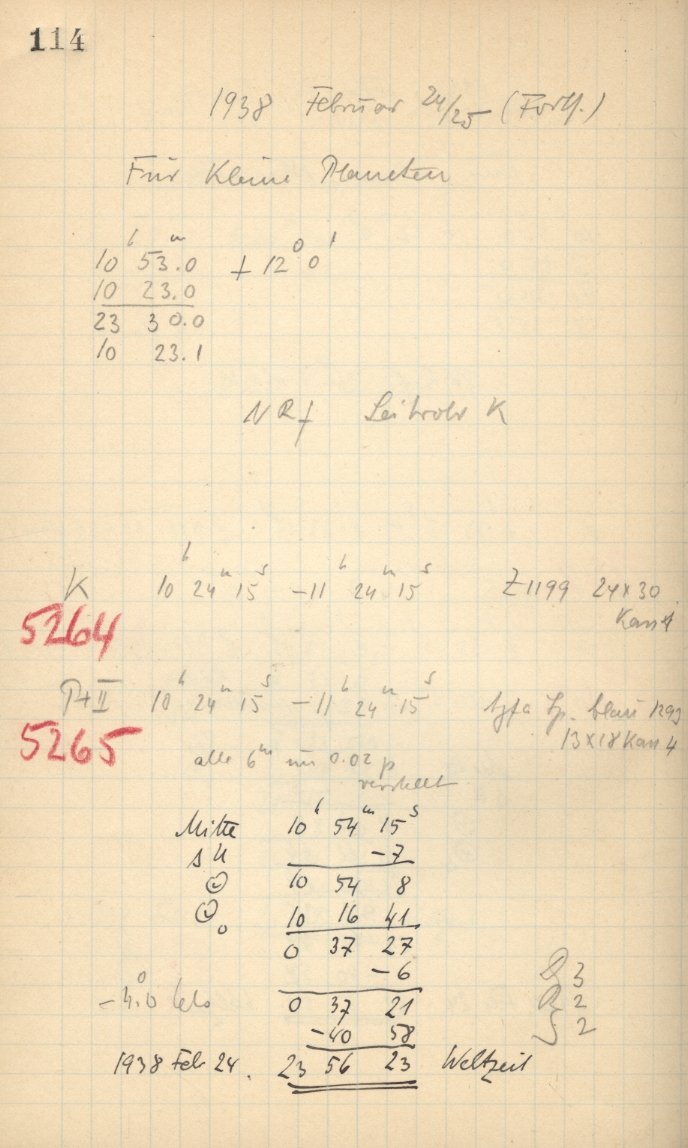 114
1938 Februar 24/25 (Forts.)
Für Kleine Planeten
10h 53.0m + 12° 0'
10 23.0
23 30.0
10 23.1
Leitrohr K
K 10h 24m 15s – 11h 24m 15s Z1199 24x30
5264 Kass 1
P+II 10h 24m 15s – 11h 24m 15s Agfa Sp. blau
5265 13x18 Kass 4
alle 6m um 0.02 p
verstellt
Mitte 10h 54m 15s
–7
10 54 8
10 16 41
0 37 27
–6 3
0 37 21 2
–40 58 2
1938 Feb 24. 23 56 23 Weltzeit